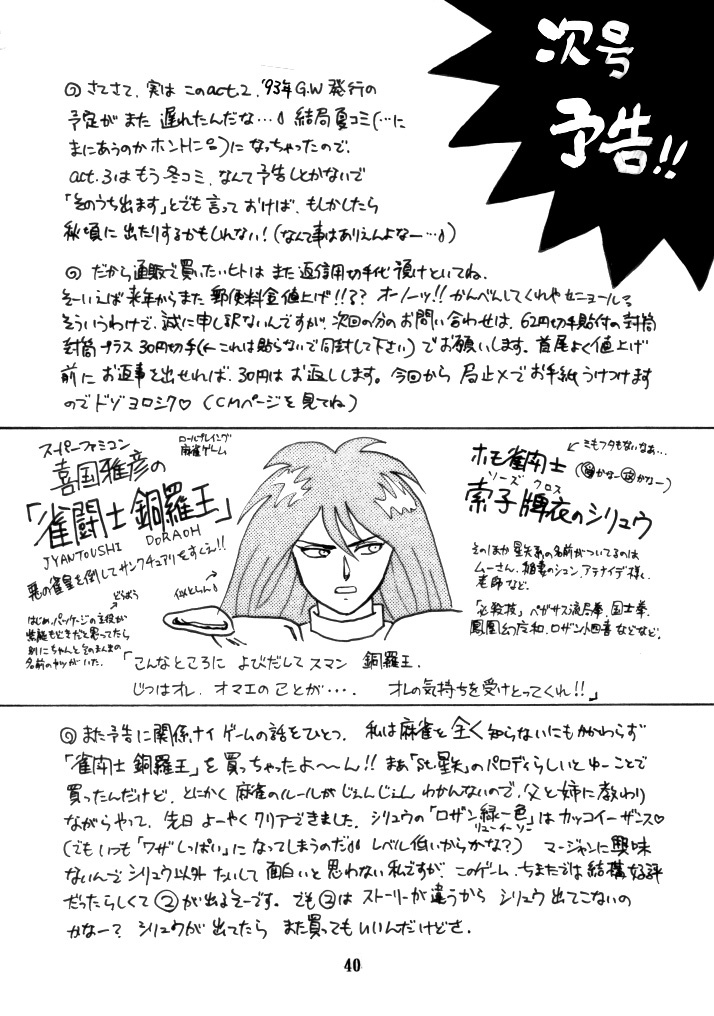 次号
予告!!
◎ さてさて、実は このact.2、'93年G.W発行の
予定が また 遅れたんだな…♪ 結局夏コミ(…に
まにあうのか ホントに?)に なっちゃったので、
act.3はもう冬コミ、なんて予告しとかないで
「そのうち出ます」とでも言っておけば、もしかしたら
秋頃に出たりするかもしれない!(なんて事はありえんよなー…♪)
◎ だから通販で買いたいヒトは また返信用切手代 預けといてね。
そーいえば来年からまた 郵便料金値上げ!!?? オーノーッ!! かんべんしてくれや セニョール
そういうわけで、誠に申し訳ないんですが、次回の分のお問い合わせは、62円切手貼付の封筒
封筒プラス 30円切手(←これは貼らないで同封して下さい)でお願いします。首尾よく値上げ
前に お返事を出せれば、30円は お返しします。今回から 局止メで お手紙うけつけます
のでドゾヨロシク♡ (CMページを見てね)
スーパーファミコン
ロールプレイング
麻雀ゲーム
喜国雅彦の
「雀闘士 銅羅王」
JYANTOUSHI DORAOH
悪の雀皇を倒してサンクチュアリをすくえ!!
どらおう
はじめ、パッケージの主役が
紫龍もどきだと思ってたら
別にちゃんとそのまんまの
名前のヤツがいた。
似とらん
ホモ雀闘士
←ミもフタもないなぁ…
ソーズ クロス
索子牌衣のシリュウ
そのほか 星矢系の名前がついてるのは
ムーさん、相妻のシュン、アテナイデ様、
老師など。
「必殺技」ペガサス流局拳、国士拳、
鳳凰幻、ロザント四喜などなど。
「こんなところに よびだして スマン 銅羅王、
じつはオレ、オマエのことが‥‥、 オレの気持ちを受けとってくれ!!」
◎ また予告に関係ナイ ゲームの話をひとつ、 私は麻雀を 全く 知らないにもかかわらず
「雀闘士 銅羅王」を買っちゃったよ〜ん!! まあ「St.星矢」のパロディらしいとゆーことで
買ったんだけど、とにかく 麻雀のルールが じぇんじぇん わかんないので、父と姉に教わり
ながらやって、先日 よーやく クリアできました。シリュウの「ロザン緑一色」は カッコイーザンス♡
リューイーソー
(でもいつも「ワザしっぱい」に なってしまうのだ レベル低いからかな?) マージャンに 興味
ないんで シリュウ以外 たいして 面白いと 思わない 私ですが、このゲーム、ちまたでは 結構 好評
だったらしくて ② が出るそーです。でも②は ストーリーが 違うから シリュウ 出てこないの
かなー? シリュウが 出てたら また買っても いいんだけどさ.
40